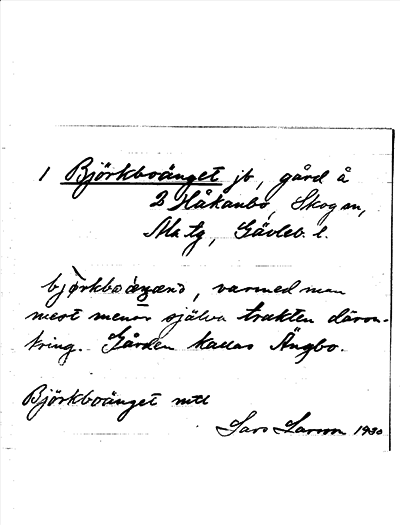 1 Björkboänget jb, gård å
2 Håkanbo, Skog sn,
Ala tg, Gävleb. l.
björkboäŋænə, varmed man
mest menar själva trakten därom-
kring. Gården kallas Ängbo.
Björkboänget mtl
Lars Larson 1930